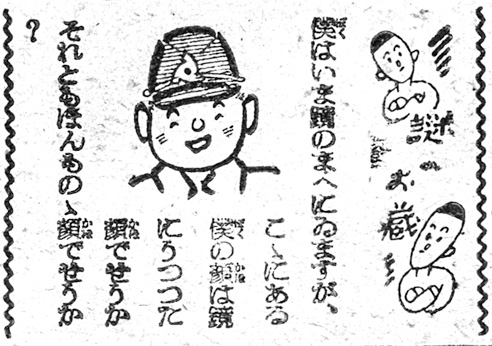 謎のお蔵
僕はいま鏡のまへにゐますが、
こゝにある
僕の顔は鏡
にうつつた
顔でせうか
それともほんものゝ顔でせうか
?